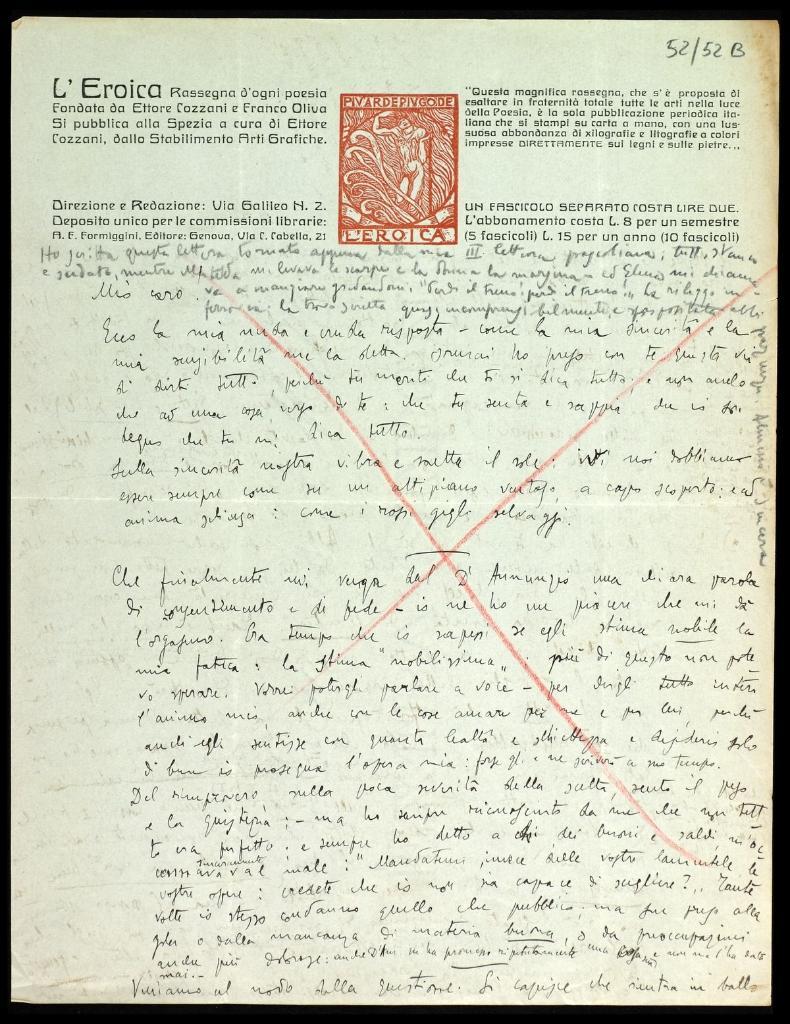 52/52 B
L'Eroica Rassegna d'ogni poesia
Fondata da Ettore Cozzani e Franco Oliva
Si pubblica alla Spezia a cura di Ettore
Cozzani, dallo Stabilimento Arti Grafiche.
Direzione e Redazione: Via Galileo N. 2.
Deposito unico per le commissioni librarie:
A. F. Formiggini, Editore: Genova, Via C. Cabella, 21
PIVARDEPIVGODE
L'EROICA
"Questa magnifica rassegna, che s'è proposta di
esaltare in fraternità totale tutte le arti nella luce
della Poesia, è la sola pubblicazione periodica ita-
liana che si stampi su carta a mano, con una lus-
suosa abbondanza di xilografie e litografie a colori
impresse DIRETTAMENTE sui legni e sulle pietre...
UN FASCICOLO SEPARATO COSTA LIRE DUE.
L'abbonamento costa L. 8 per un semestre
(5 fascicoli) L. 15 per un anno (10 fascicoli)
Ho scritta questa lettera tornato appena dalla mia III lettura pascoliana; tutto stanco
e sudato, mentre mi levava le scarpe e la donna la ed Elena mi chiama-
va a mangiare gridandomi: "Perdi il treno! perdi il treno!" La rileggo in
ferrovia: la trovo scritta quasi incomprensibilmente e spropositata: abbi
pazienza. Almeno è sincera
Mio caro
Ecco la mia nuda e cruda risposta – come la mia sincerità e la
mia sensibilità me la detta. Oramai ho preso con te questa via
di dirti tutto, perché tu meriti che ti si dica tutto: e non anelo
che ad una cosa verso di te: che tu senta e sappia che io son
degno che tu mi dica tutto.
Sulla sincerità nostra vibra e saetta il sole: noi dobbiamo
essere sempre come su un altipiano ventoso, a capo scoperto: e ad
anima : come i rossi gigli selvaggi.
Che finalmente mi venga dal D'Annunzio una chiara parola
di consentimento e di fede – io ne ho un piacere che mi dà
l'orgasmo. Era tempo che io sapessi se egli stima nobile la
mia fatica: la stima "nobilissima": più di questo non pote-
vo sperare. Vorrei potergli parlare a voce – per dirgli tutto intero
l'animo mio, anche con le cose amare per me e per lui, perché
anch'egli sentisse con quanta lealtà e schiettezza e desiderio solo
di bene io proseguo l'opera mia: forse gli e ne scriverò a suo tempo.
Del rimprovero sulla poca severità della scelta, sento il peso
e la giustezza: – ma ho sempre riconosciuto da me che non tut-
to era perfetto: e sempre ho detto a chi dei buoni e saldi, m'ac-
cennava sinceramente al male: "Mandatemi invece delle vostre lamentele le
vostre opere: credete che io non sia capace di scegliere?". Tante
volte io stesso condanno quello che pubblico: ma son preso alla
gola o dalla mancanza di materia buona, o da preoccupazioni
anche più dolorose: anche mi ha promesso ripetutamente una e non me l'ha data
mai.–
Veniamo al nodo della questione. Si capisce che rientra in ballo